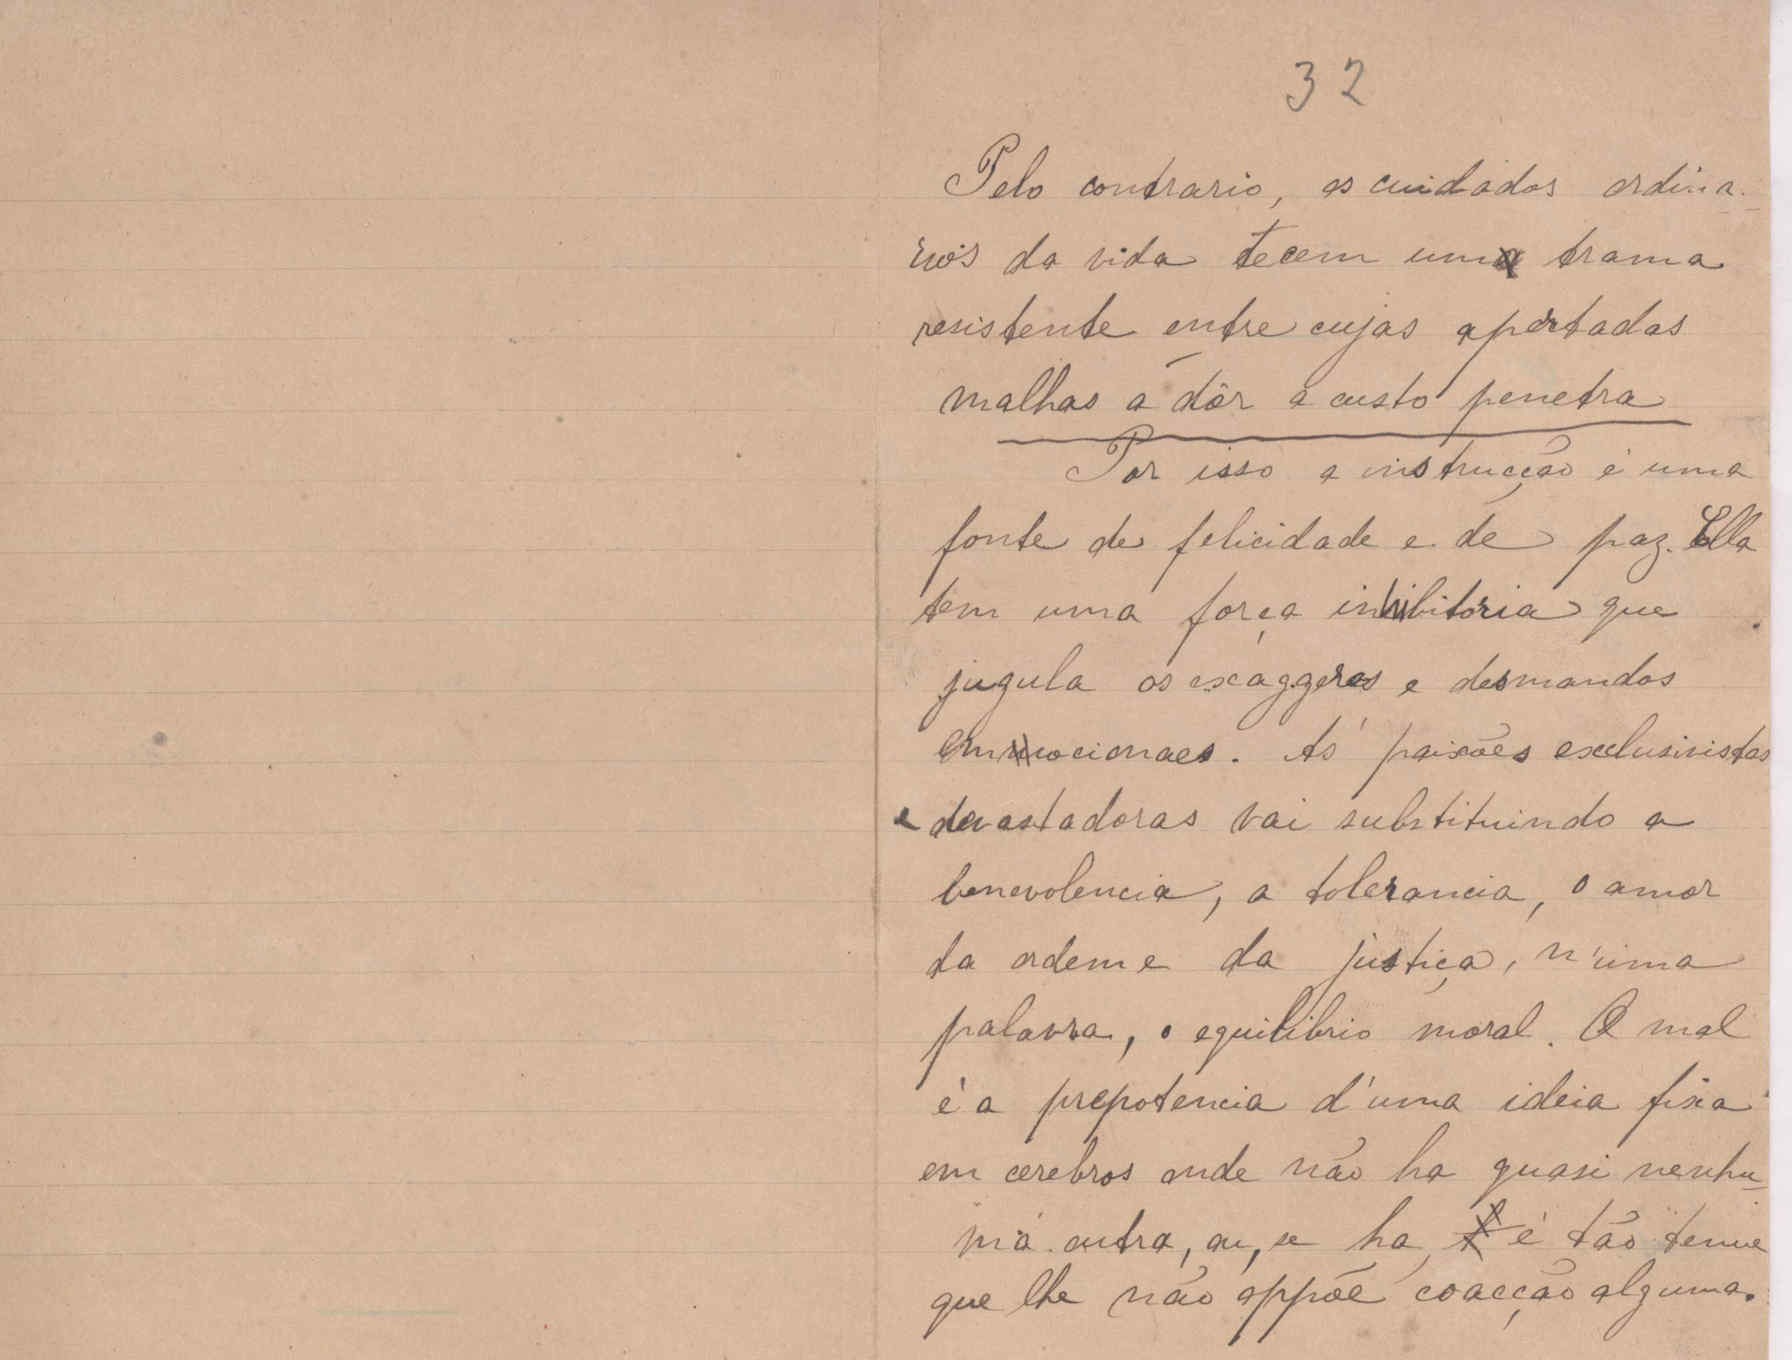 32
Pelo contrario, os cuidados ordina-
rios da vida tecem uma trama
resistente entre cujas apertadas
malhas a dôr a custo penetra
Por isso a instrucção é uma
fonte de felicidade e de paz. Ella
tem uma força inhibitoria que
jugula os exaggeros e desmandos
emocionaes. Ás paixões exclusivistas
e devastadoras vai substituindo a
benevolencia, a tolerancia, o amor
da ordem e da justiça, n'uma
palavra, o equilibrio moral. O mal
é a prepotencia d'uma ideia fixa
em cerebros onde não ha quasi nenhu-
ma outra, ou, se ha, é tão tenue
que lhe não oppõe coacção alguma.